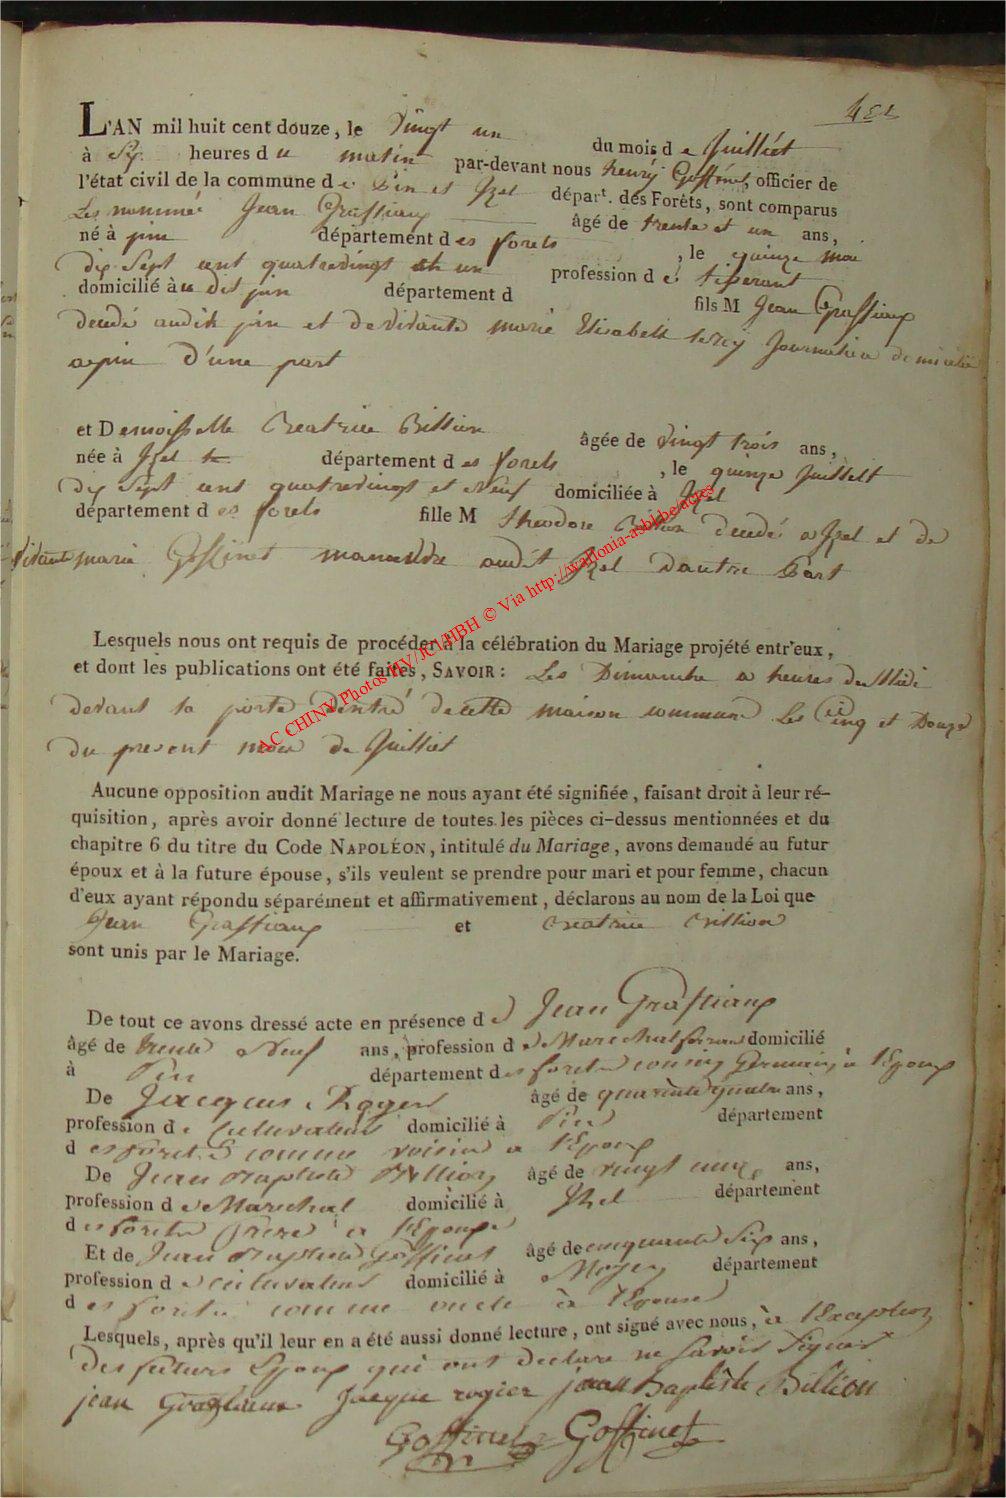 L'AN mil huit cent douze, le Vingt un du mois de Juilliét
à Six heures du matin par-devant nous henrÿ Goffinet, officier de
l'état civil de la commune de Pin et Izel départ. des Forêts, sont comparus
Les nommé Jean Graffiaux âgé de trente et un ans,
né à pin département des forets, le quinze mai
dix Sept cent quatrevingt et un profession de tiserant
domicilié au dit pin département d fils M Jean Graffiaux
decedé audit pin et de Vivante marie Elisabeth Journaliere domiciliée
a pin D'une part
et Demoisselle Beatrice Billion âgée de Vingt trois ans,
née à Izel département des forets, le quinze Juillelt
dix Sept cent quatrevingt et Neuf domiciliée à Izel
département des forets fille M Theodore Billion decedé a Izel et de
Vivante marie Goffinet audit Izel D'autre Part
Lesquels nous ont requis de procéder à la célébration du Mariage projété entr'eux,
et dont les publications ont été faites, SAVOIR: Les Dimanche a heures du Midi
devant la porte D'entré de cette maison commune Les Cinq et Douze
du present mois de Juilliet
Aucune opposition audit Mariage ne nous ayant été signifiée, faisant droit à leur ré-
quisition, après avoir donné lecture de toutes les pièces ci-dessus mentionnées et du
chapitre 6 du titre du Code NAPOLÉON, intitulé du Mariage, avons demandé au futur
époux et à la future épouse, s'ils veulent se prendre pour mari et pour femme, chacun
d'eux ayant répondu séparément et affirmativement, déclarons au nom de la Loi que
Jean Graffiaux et Beatrice Billion
sont unis par le Mariage.
De tout ce avons dressé acte en présence de Jean Graffiaux
âgé de trente Neuf ans, profession de Marechal domicilié
à Pin département des forets cousin Germain a l'Epoux
De Jacques Rogier âgé de quarante quatre ans,
profession de Cultivateur domicilié à Pin département
des forets comme voisin a l'Epoux
De Jean Baptiste Billion âgé de vingt ans,
profession de Marechal domicilié à Izel département
des forets frere a l'Epouse
Et de Jean Baptiste Goffinet âgé de cinquante Six ans,
profession de cultivateur domicilié à Moyen département
des forets comme oncle à l'Epouse
Lesquels, après qu'il leur en a été aussi donné lecture, ont signé avec nous, à l'Exception
Des futurs Epoux qui ont declare ne Savoir Signer
jean Graffiaux Jacque rogier jean Baptiste Billion
Goffinet Goffinet
AC CHINY Photos HV/JCV/HBH © Via http://wallonia-asbl.be/actes